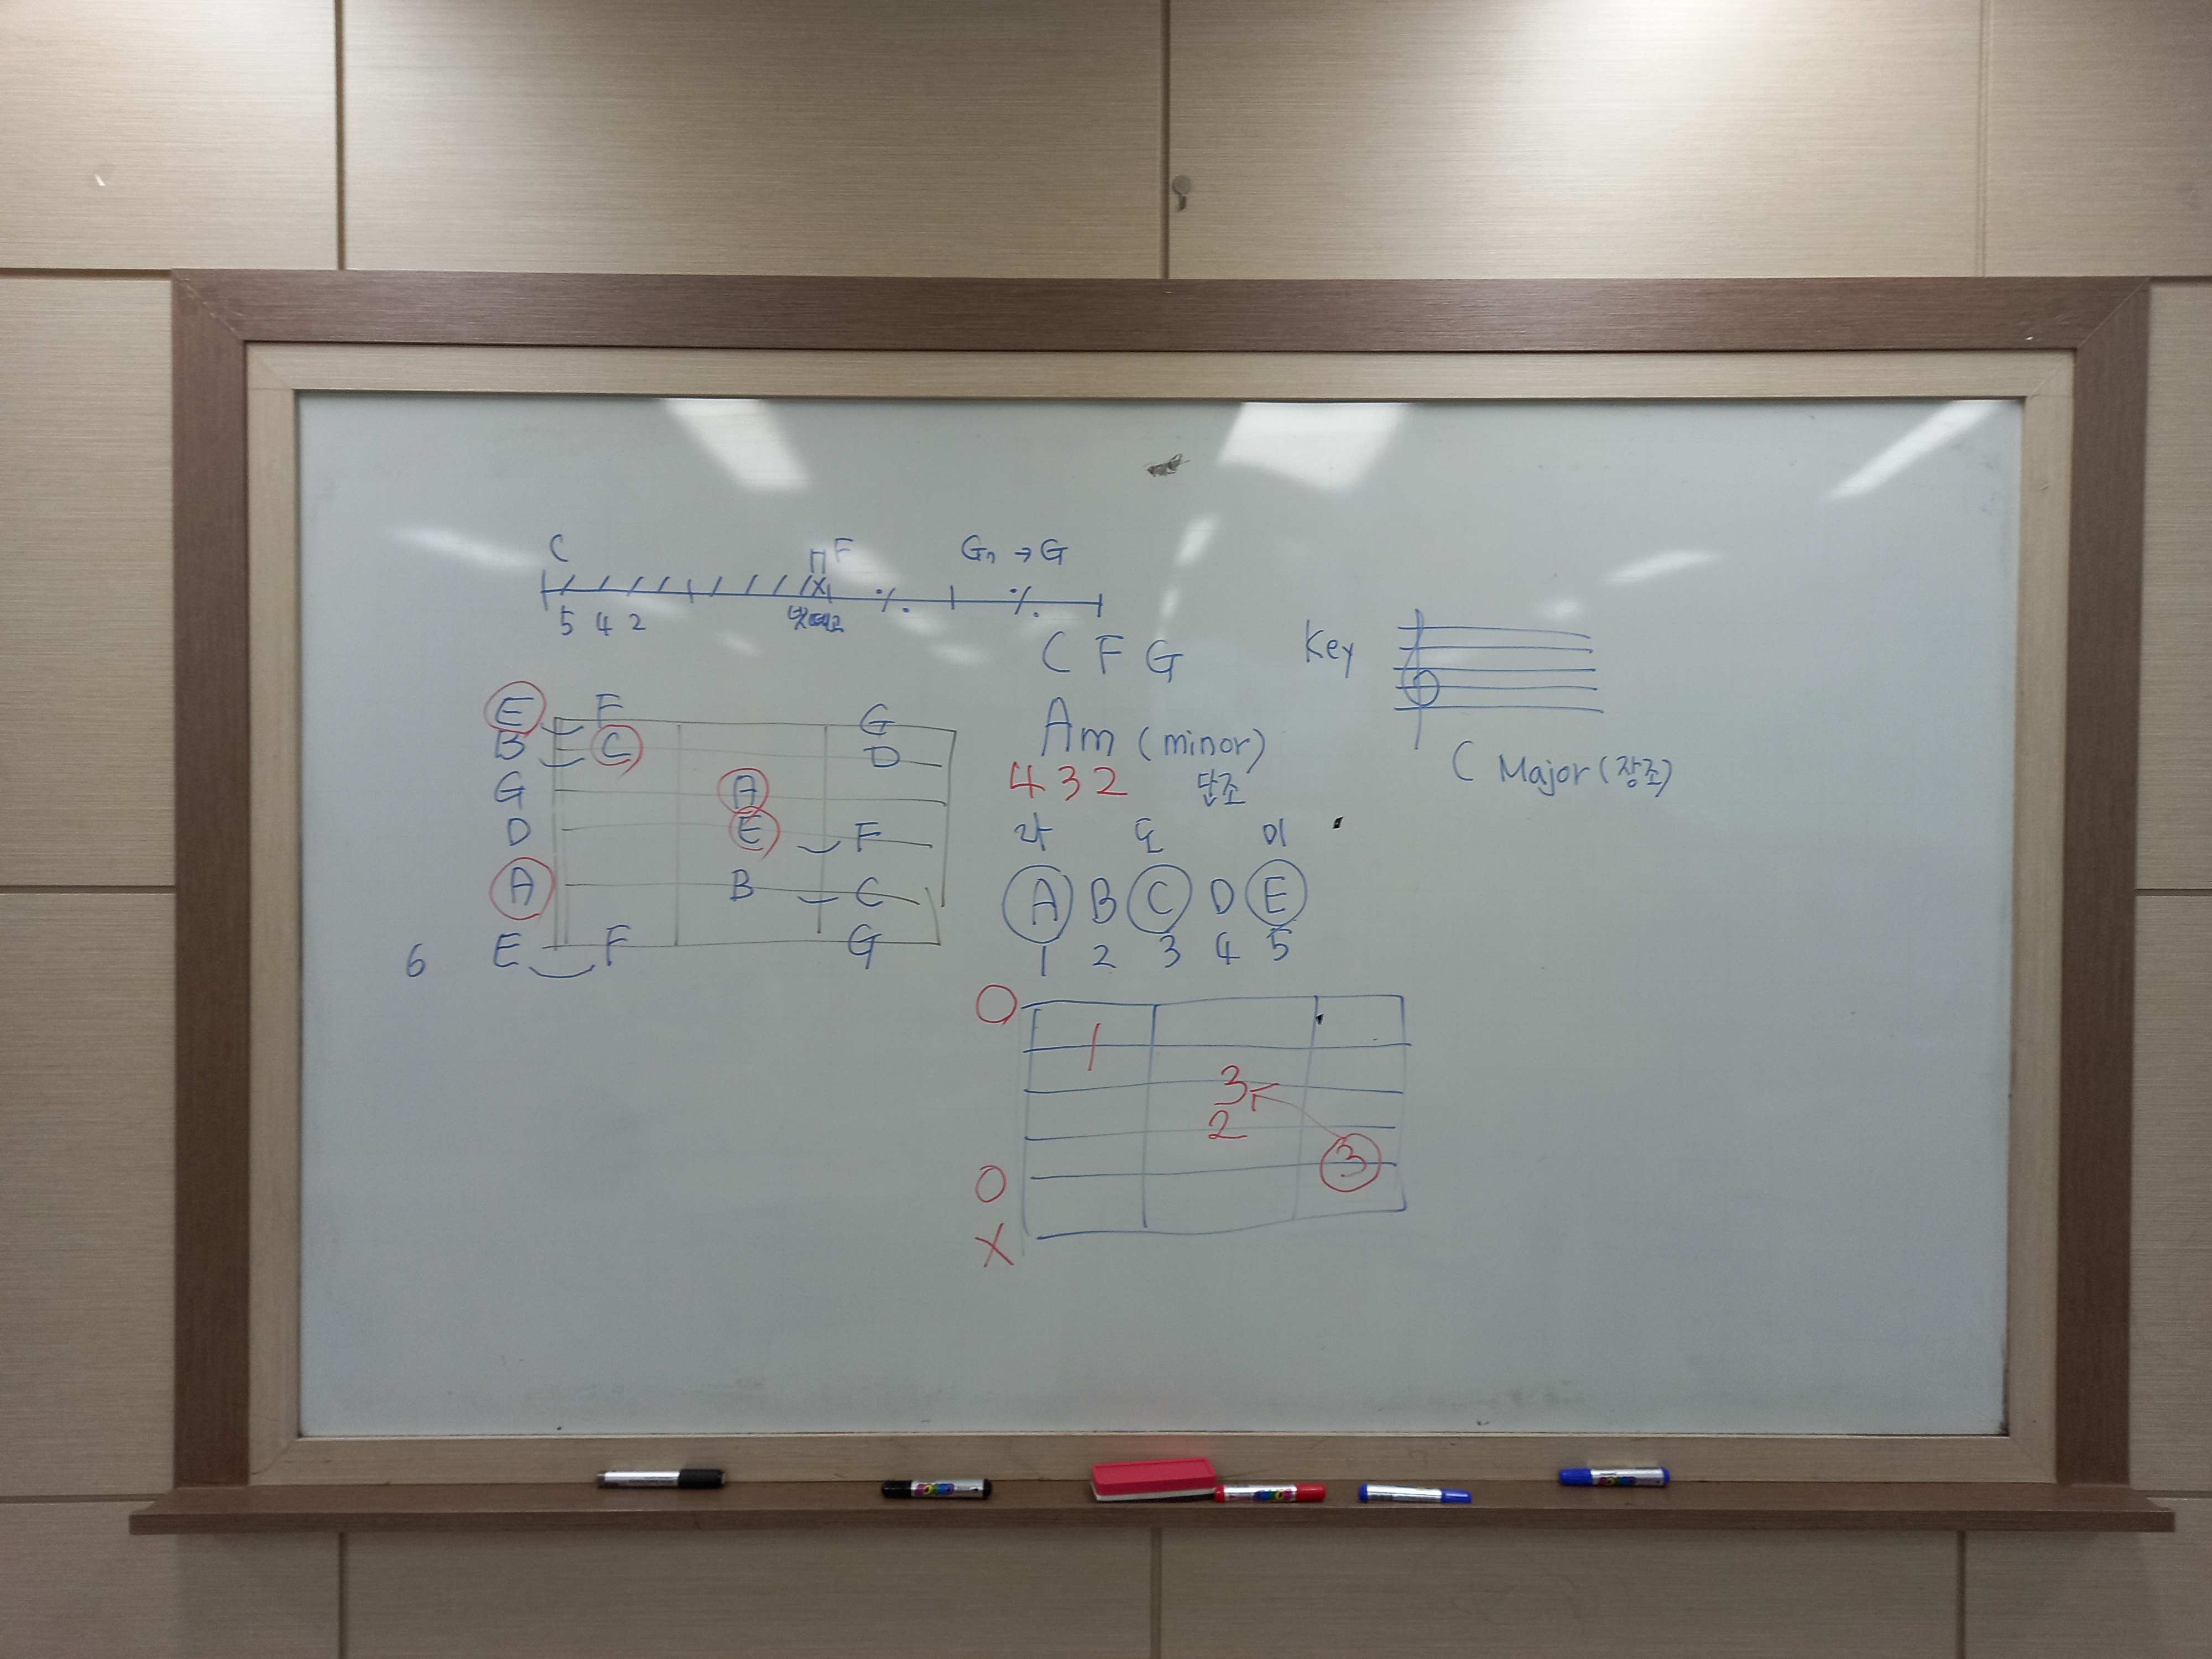 C F G7 → G
5 4 2
C F G
Key
E F G
B C D
G A
D E F
A B C
6 E F G
Am (minor)
4 3 2 단조
C Major (장조)
라 도 미
A B C D E
1 2 3 4 5
O
1
3
2
3
O
X